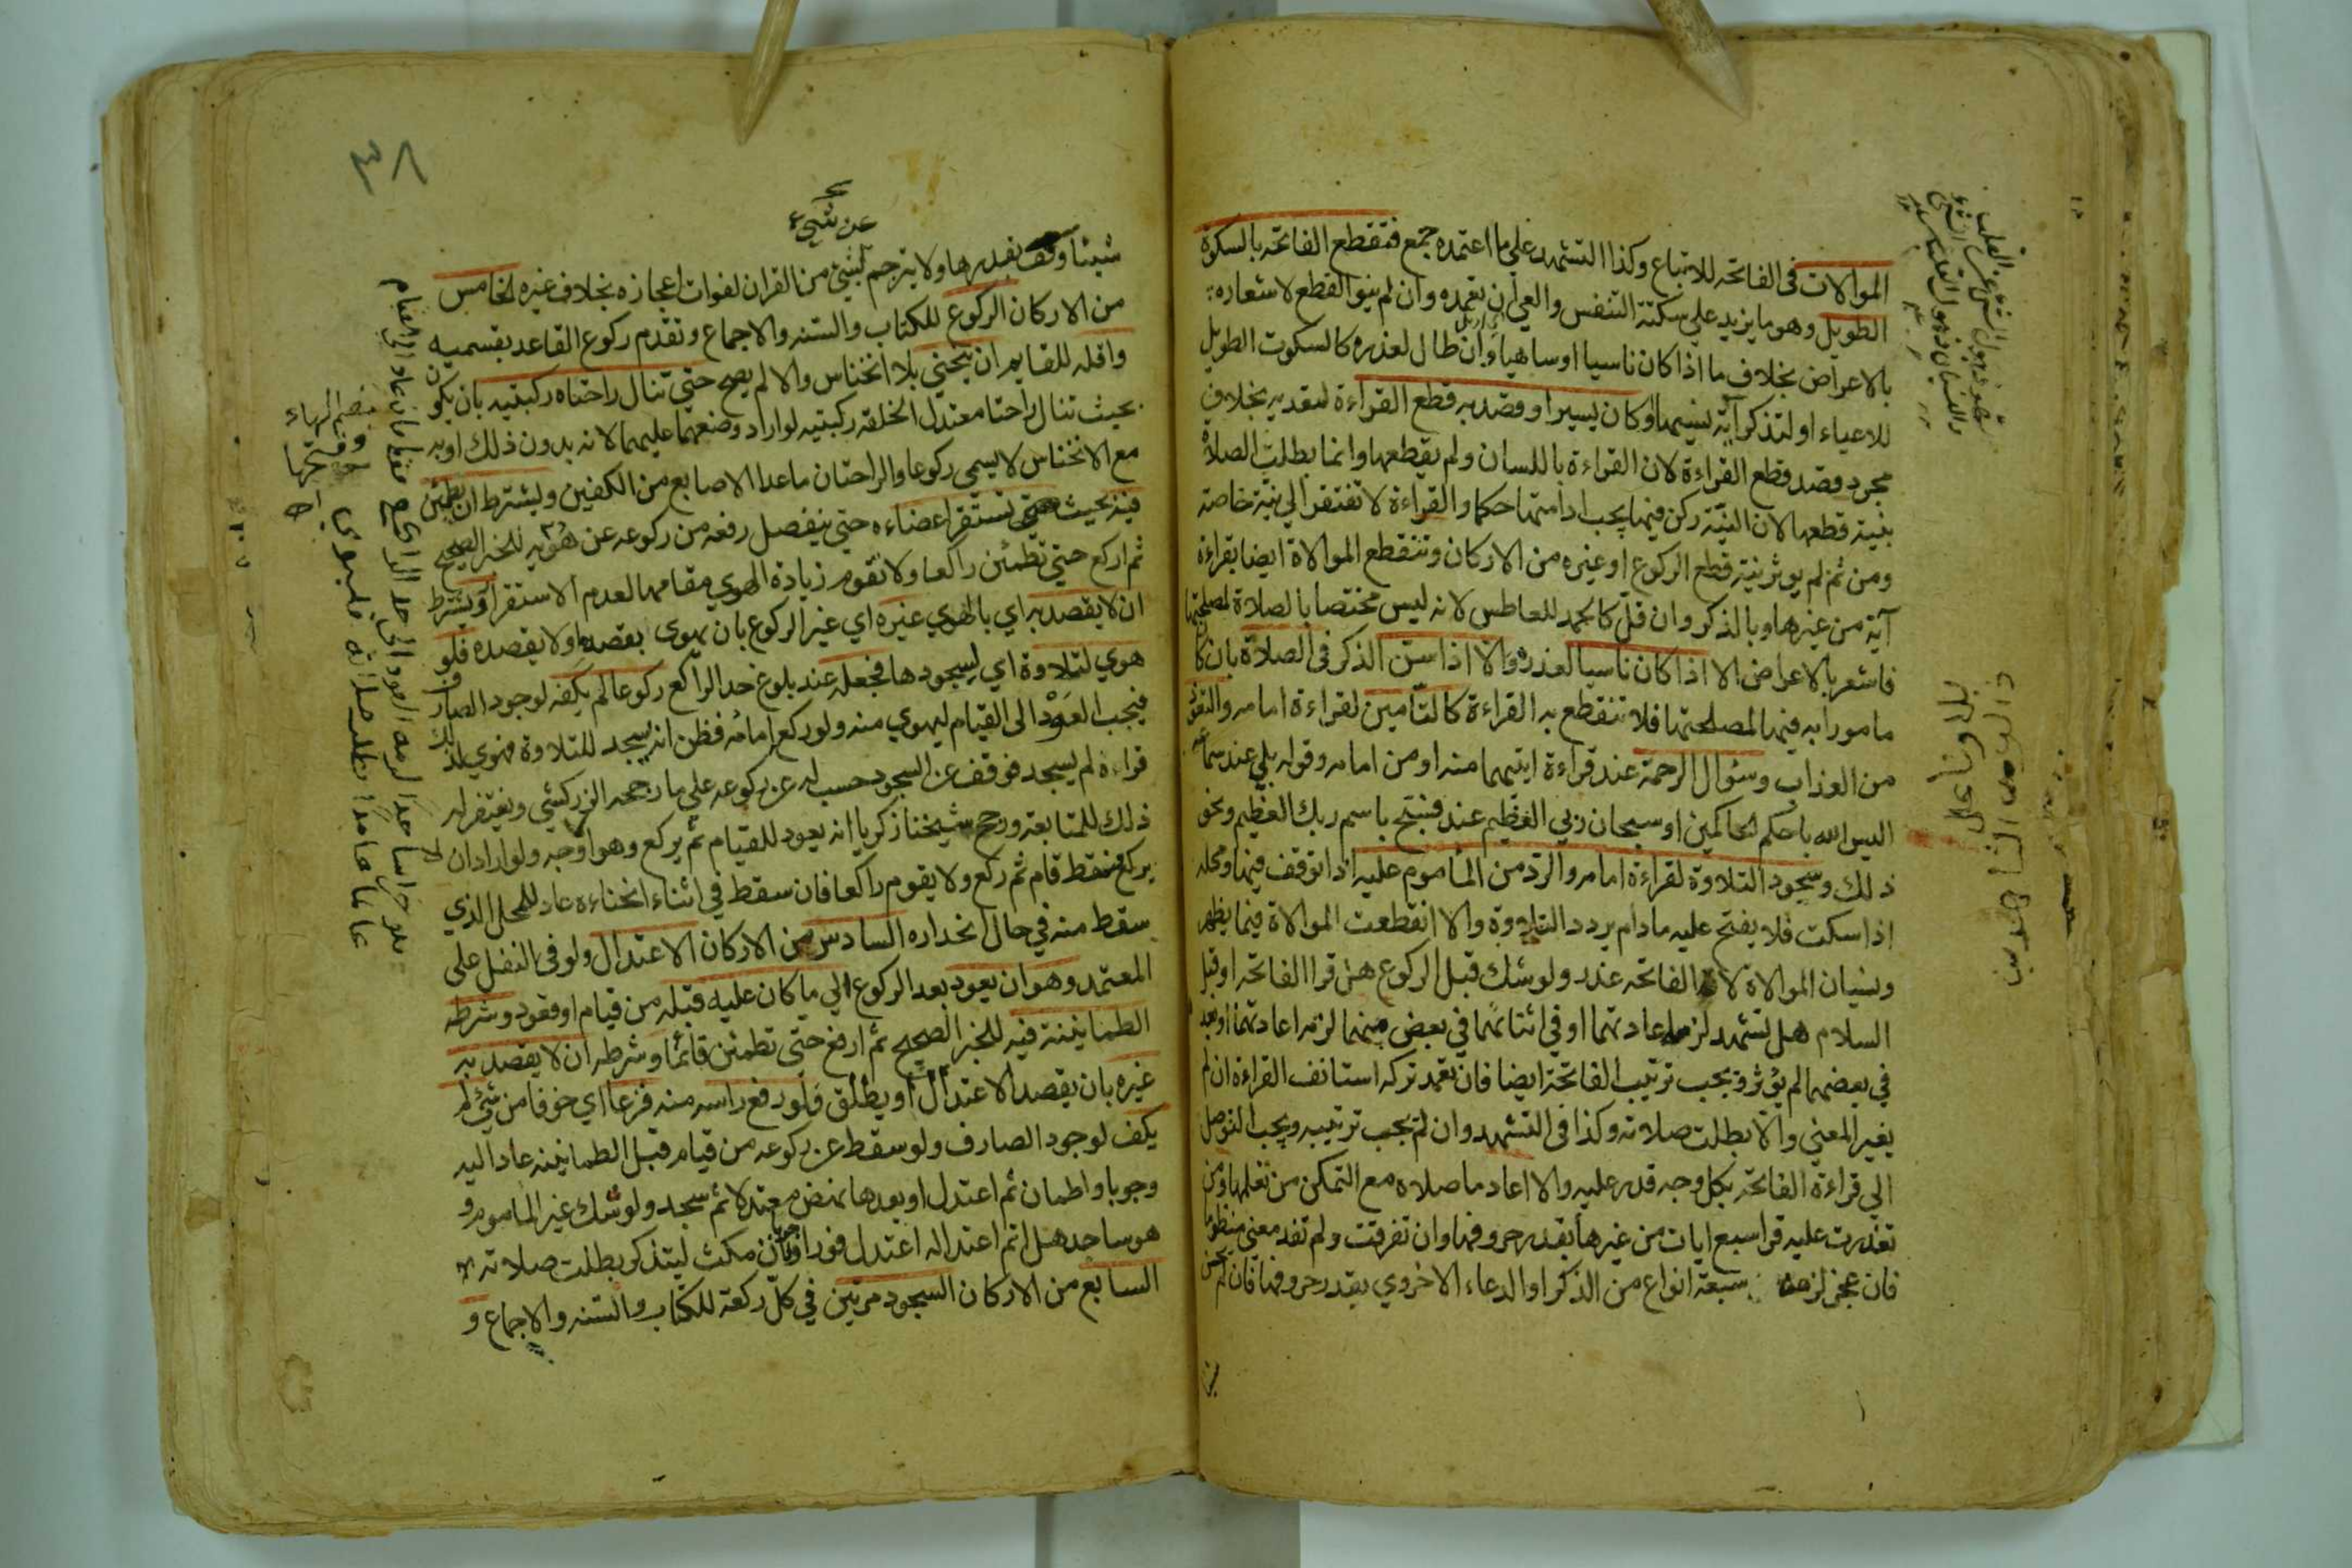 الموالات في الفاتحة للاتباع وكذا التشهد علي ما اعتمده جمع فتقطع الفاتحه بالسكوت
الطويل وهو ما يزيد علي سكتة التنفس والعي ان تعمده وان لم ينو القطع لاشعاره
بالاعراض بخلاف ما اذا كان ناسيا او ساهيا وان طال لعذره كالسكوت الطويل
للاعياء او لتذكر آية نسيها او كان يسيرا وقصد به قطع القراءة لتعديه بخلاف
مجرد قصد قطع القراءة لان القراءة باللسان ولم يقطعها وانما بطلت الصلاة
بنية قطعها لان النيّة ركن فيها يجب ادامتها حكما والقراءة لا تفتقر الي نية خاصة
ومن ثم لم يوثر نية قطع الركوع او غيره من الاركان وتنقطع الموالاة ايضا بقراءة
آية من غيرها وبالذكر وان قل كالحمد للعاطس لانه ليس مختصا بالصلاة لمصلحتها
فاشعر بالاعراض الا اذا كان ناسيا لعذره والا اذا سن الذكر في الصلاة بان كان
مامورا به فيها لمصلحتها فلا تنقطع به القراءة كالتّامين لقراءة امامه والتعوّذ
من العذاب وسؤال الرحمة عند قراءة ايتهما منه او من امامه وقوله بلي عند سماعه
اليس الله باحكم الحاكمين او سبحان ربي العظيم عند فسبّح باسم ربك العظيم ونحو
ذلك وسجود التلاوة لقراءة امامه والرّد من الماموم عليه اذا توقف فيها ومحله
اذا سكت فلا يفتح عليه مادام يردد التلاوة والا انقطعت الموالاة فيما يظهر
ونسيان الموالاة لا الفاتحه عذر ولو شك قبل الركوع هل قرا الفاتحه او قبل
السلام هل تشهد لزمه اعادتهما او في اثنائهما في بعض منهما لزمه اعادتهما او بعد
في بعضهما لم يؤثر ويجب ترتيب الفاتحة ايضا فان تعمد تركه استانف القراءة ان لم
يغير المعني والّا بطلت صلاته وكذا في التشهد وان لم يجب ترتيبه ويجب التوصل
الي قراءة الفاتحة بكل وجه قدر عليه والا اعاد ما صلاه مع التمكن من تعلمها ومن
تعذرت عليه قرا سبع ايات من غيرها بقدر حروفها وان تفرقت ولم تفد معني منظوما
فان عجز لزمه سبعة انواع من الذكر او الدعاء الاخروي بقدر حروفها فان لم يحسن
٣٨
عن شيء
شيئا وقف بقدرها ولا يترجم لشيئ من القران لفوات اعجازه بخلاف غيره الخامس
من الاركان الركوع للكتاب والسّنه والاجماع وتقدم ركوع القاعد بقسميه
واقله للقايم ان ينحني بلا انخناس والا لم يصح حتي تنال راحتاه ركبتيه بان يكون
بحيث تنال راحتا معتدل الخلقه ركبتيه لو اراد وضعهما عليهما لانه بدون ذلك او به
مع الانخناس لا يسمي ركوعا والراحتان ماعدا الاصابع من الكفين ويشترط ان يطمئن
فيه بحيث تستقر اعضاءه حتي ينفصل رفعه من ركوعه عن هويه للخبر الصحيح
ثم اركع حتي تطمئن راكعا ولا تقوم زيادة الهوي مقامها لعدم الاستقرار ويشترط
ان لا يقصد به اي بالهوي غيره اي غير الركوع بان يهوي بقصده او لا يقصده فلو
هوي لتلاوة اي لسجودها فجعله عند بلوغ حد الراكع ركوعا لم يكفه لوجود الصارف
فيجب العود الى القيام ليهوي منه ولو ركع امامه فظن انه يسجد للتلاوة فهوي لذلك
فراه لم يسجد فوقف عن السجود حسب له عن ركوعه علي ما رجحه الزركشي ويغتفر له
ذلك للمتابعة ورجح شيخنا زكريا انه يعود للقيام ثم يركع وهو اوجه ولو اراد ان
يركع فسقط قام ثم ركع ولا يقوم راكعا فان سقط في اثناء انحناءه عاد للمحل الذي
سقط منه في حال انحداره السادس من الاركان الاعتدال ولو في النفل على
المعتمد وهو ان يعود بعد الركوع الي ما كان عليه قبله من قيام او قعود وشرطه
الطمانينة فيه للخبر الصحيح ثم ارفع حتى تطمئن قائما وشرطه ان لا يقصد به
غيره بان يقصد الاعتدال او يطلق فلو رفع راسه منه فزعا اي خوفا من شيئ لم
يكف لوجود الصارف ولو سقط عن ركوعه من قيام قبل الطمانينه عاد اليه
وجوبا واطمان ثم اعتدل او بعدها نهض معتدلا ثم سجد ولو شك غير الماموم و
هو ساجد هل اتم اعتداله اعتدل فورا وجوبا فان مكث ليتذكر بطلت صلاته
السابع من الاركان السجود مرتين في كلّ ركعة للكتاب والسّنه والاجماع و
بضم الهاء
وفتحها